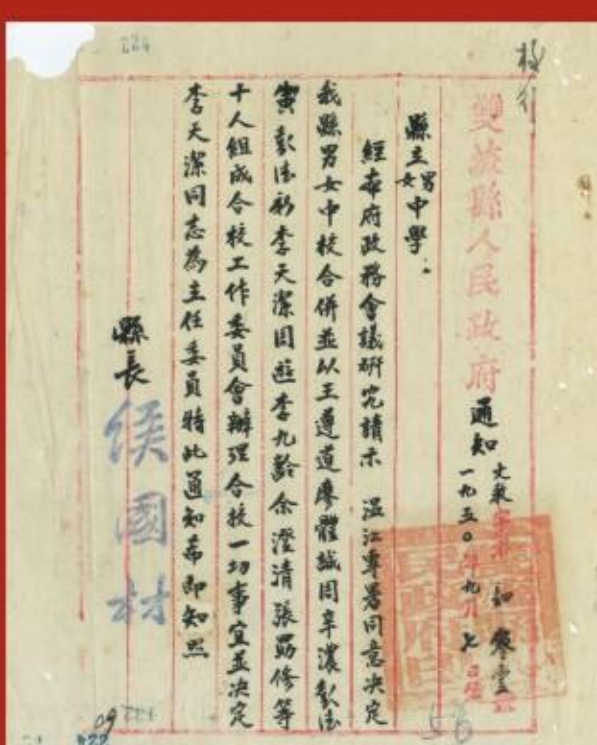 224
雙流縣人民政府通知
文教字第
一九五〇年九月七日
縣立男女中學:
經本府政務會議研究請示 溫江專署同意決定
我縣男女中校合併並以王遵道廖體誠周辛濃彭法
寅彭法礽李天潔周遊李九齡余澄清張勗修等
十人組成合校工作委員會辦理合校一切事宜並決定
李天潔同志為主任委員特此通知希即知照
縣長 侯國材
58